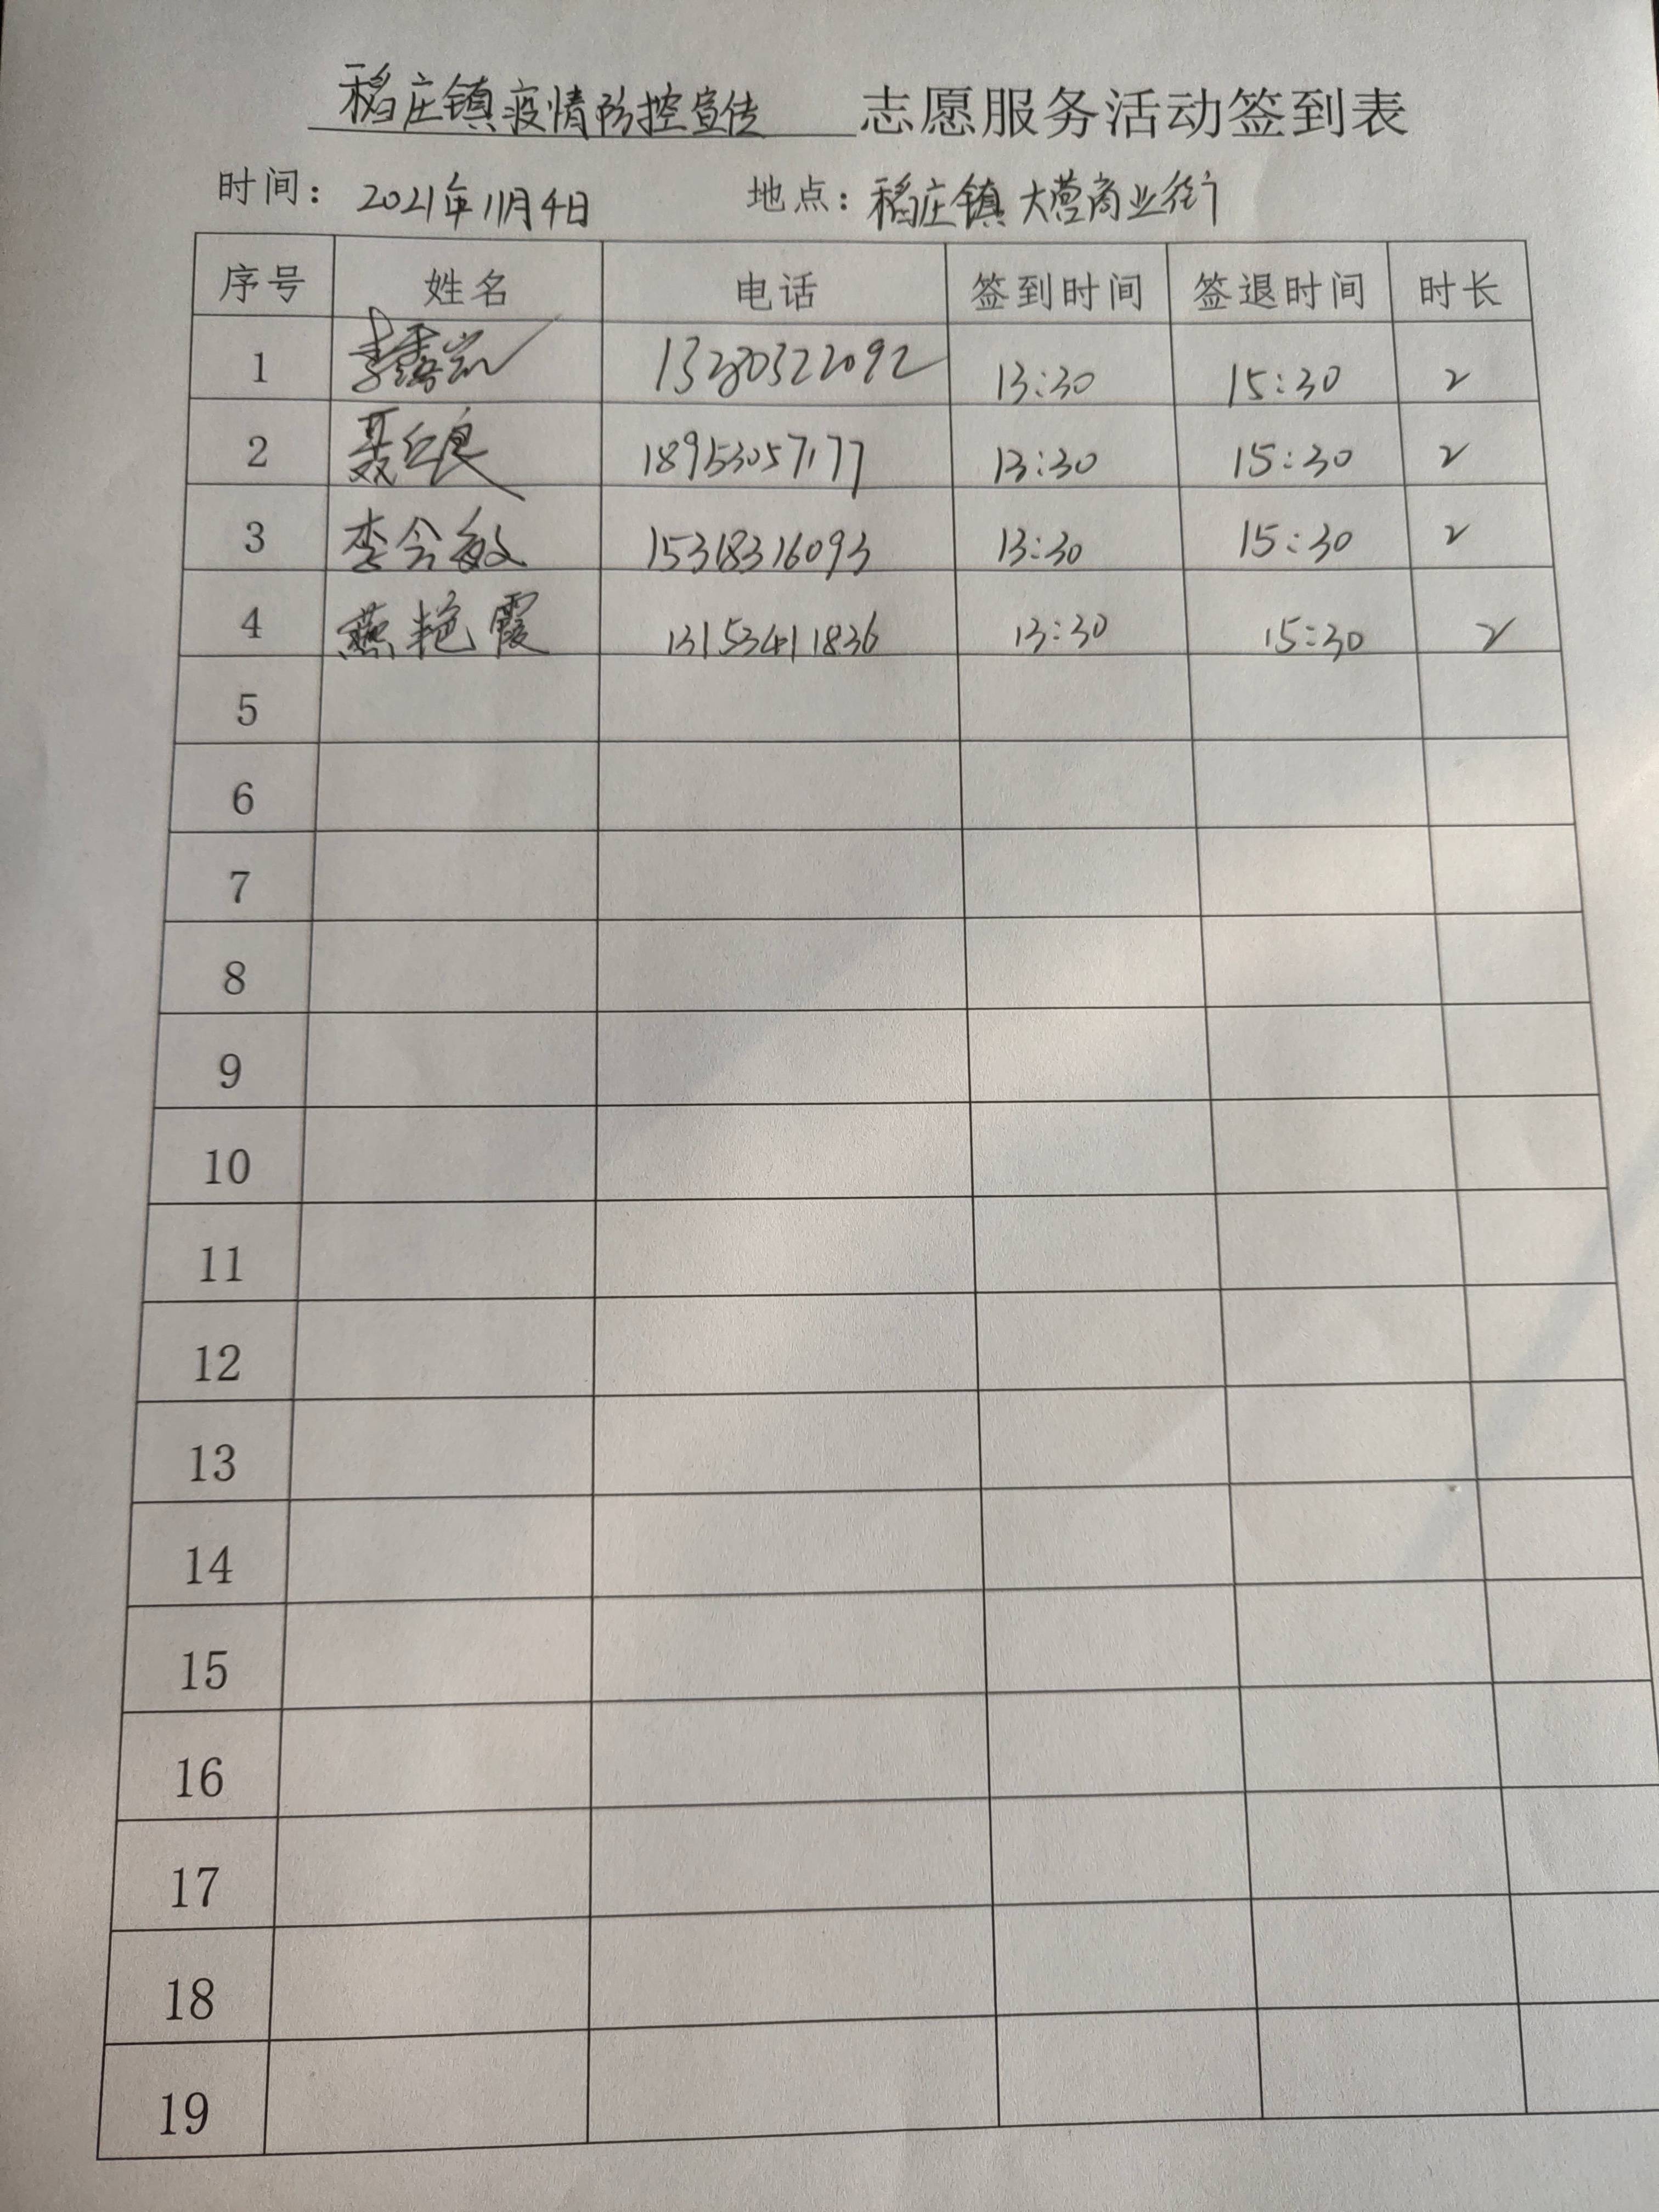 稻庄镇疫情防控宣传 志愿服务活动签到表
时间: 2021年11月4日 地点: 稻庄镇大营商业街
序号 姓名 电话 签到时间 签退时间 时长
1 13:30 15:30 2
2 18953057177 13:30 15:30 2
3 李会敏 15318316093 13:30 15:30 2
4 燕艳霞 13153411836 13:30 15:30 2
5
6
7
8
9
10
11
12
13
14
15
16
17
18
19